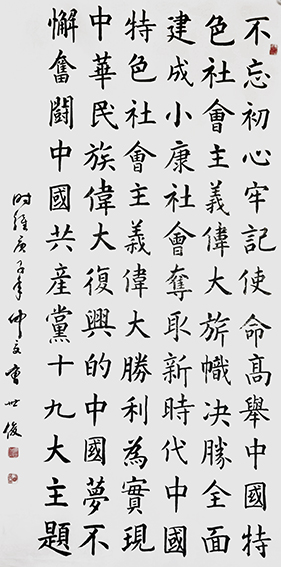 不忘初心牢記使命高舉中國特
色社會主義偉大旂幟决勝全面
建成小康社會奪取新時代中國
特色社會主義偉大勝利為實現
中華民族偉大復興的中國夢不
懈奮鬪中國共產黨十九大主題
时維庚子年仲文曹世俊